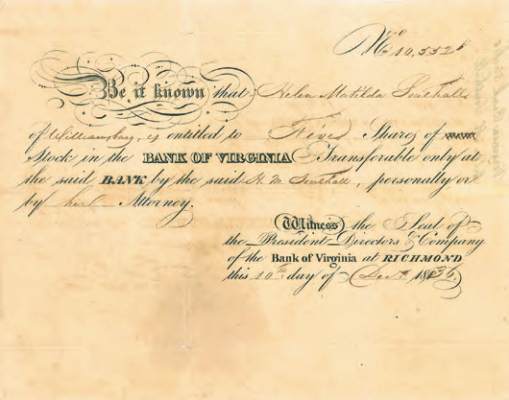 No 10,552
Be it known that Helen Matilda Southall
of Williamsburg, is entitled to Five Shares of
Stock in the BANK OF VIRGINIA Transferable only at
the said BANK by the said H. M. Southall, personally or
by her Attorney.
Witness the Seal of
the President Directors & Company
of the Bank of Virginia at RICHMOND
this 10th day of 1836